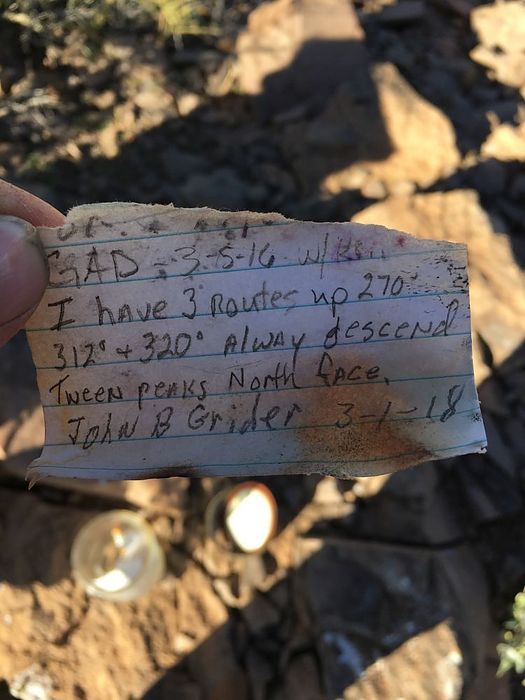 GAD - 3-5-16 w/
I have 3 Routes up 270°
312° + 320° Alway descend
Tween peaks North face.
John B Grider 3-1-18